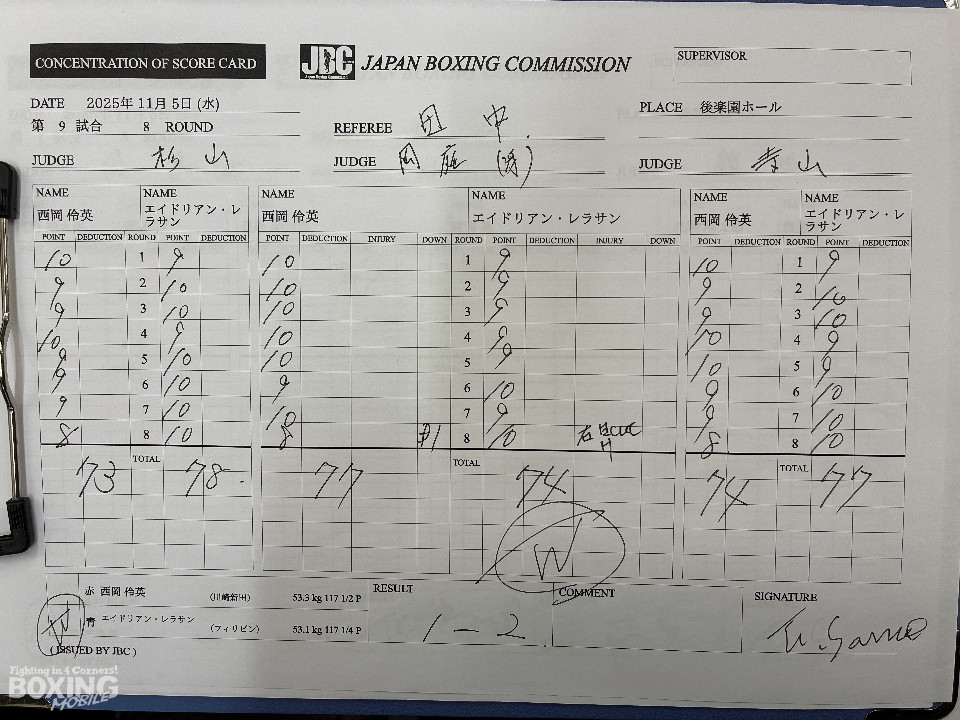 CONCENTRATION OF SCORE CARD
JBC
Japan Boxing Commission
JAPAN BOXING COMMISSION
SUPERVISOR
DATE 2025年 11月 5日 (水)
PLACE 後楽園ホール
第 9 試合 8 ROUND
REFEREE 田中
JUDGE 杉山
JUDGE 岡庭
JUDGE 寺山
NAME 西岡 伶英
NAME エイドリアン・レラサン
NAME 西岡 伶英
NAME エイドリアン・レラサン
NAME 西岡 伶英
NAME エイドリアン・レラサン
POINT DEDUCTION ROUND POINT DEDUCTION POINT DEDUCTION INJURY DOWN ROUND POINT DEDUCTION INJURY DOWN POINT DEDUCTION ROUND POINT DEDUCTION
10 1 9 10 1 9 10 1 9
9 2 10 10 2 9 9 2 10
9 3 10 10 3 9 9 3 10
10 4 9 10 4 9 10 4 9
9 5 10 10 5 9 10 5 9
9 6 10 9 6 10 9 6 10
9 7 10 10 7 9 9 7 10
8 8 10 8 1 8 10 右目cut H 8 8 10
73 TOTAL 78 77 TOTAL 74 74 TOTAL 77
W
赤 西岡 伶英 (川崎新田) 53.3 kg 117 1/2 P
RESULT
COMMENT
SIGNATURE
W 青 エイドリアン・レラサン (フィリピン) 53.1 kg 117 1/4 P
1-2
(ISSUED BY JBC)
Fighting in 4 Corners!
BOXING
MOBILE